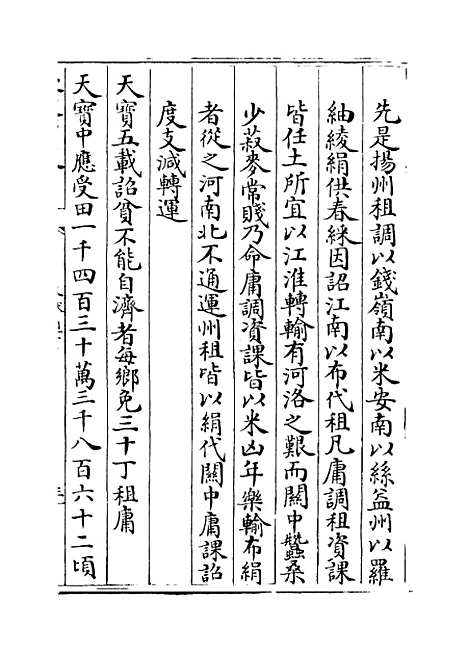 先是揚州租調以錢嶺南以米安南以絲益州以羅
紬綾絹供春綵因詔江南以布代租凡庸調租資課
皆任土所宜以江淮轉輸有河洛之艱而關中蠶桑
少菽麥常賤乃命庸調資課皆以米凶年樂輸布絹
者從之河南北不通運州租皆以絹代關中庸課詔
度支減轉運
天寶五載詔貧不能自濟者每鄉免三十丁租庸
天寶中應受田一千四百三十萬三千八百六十二頃